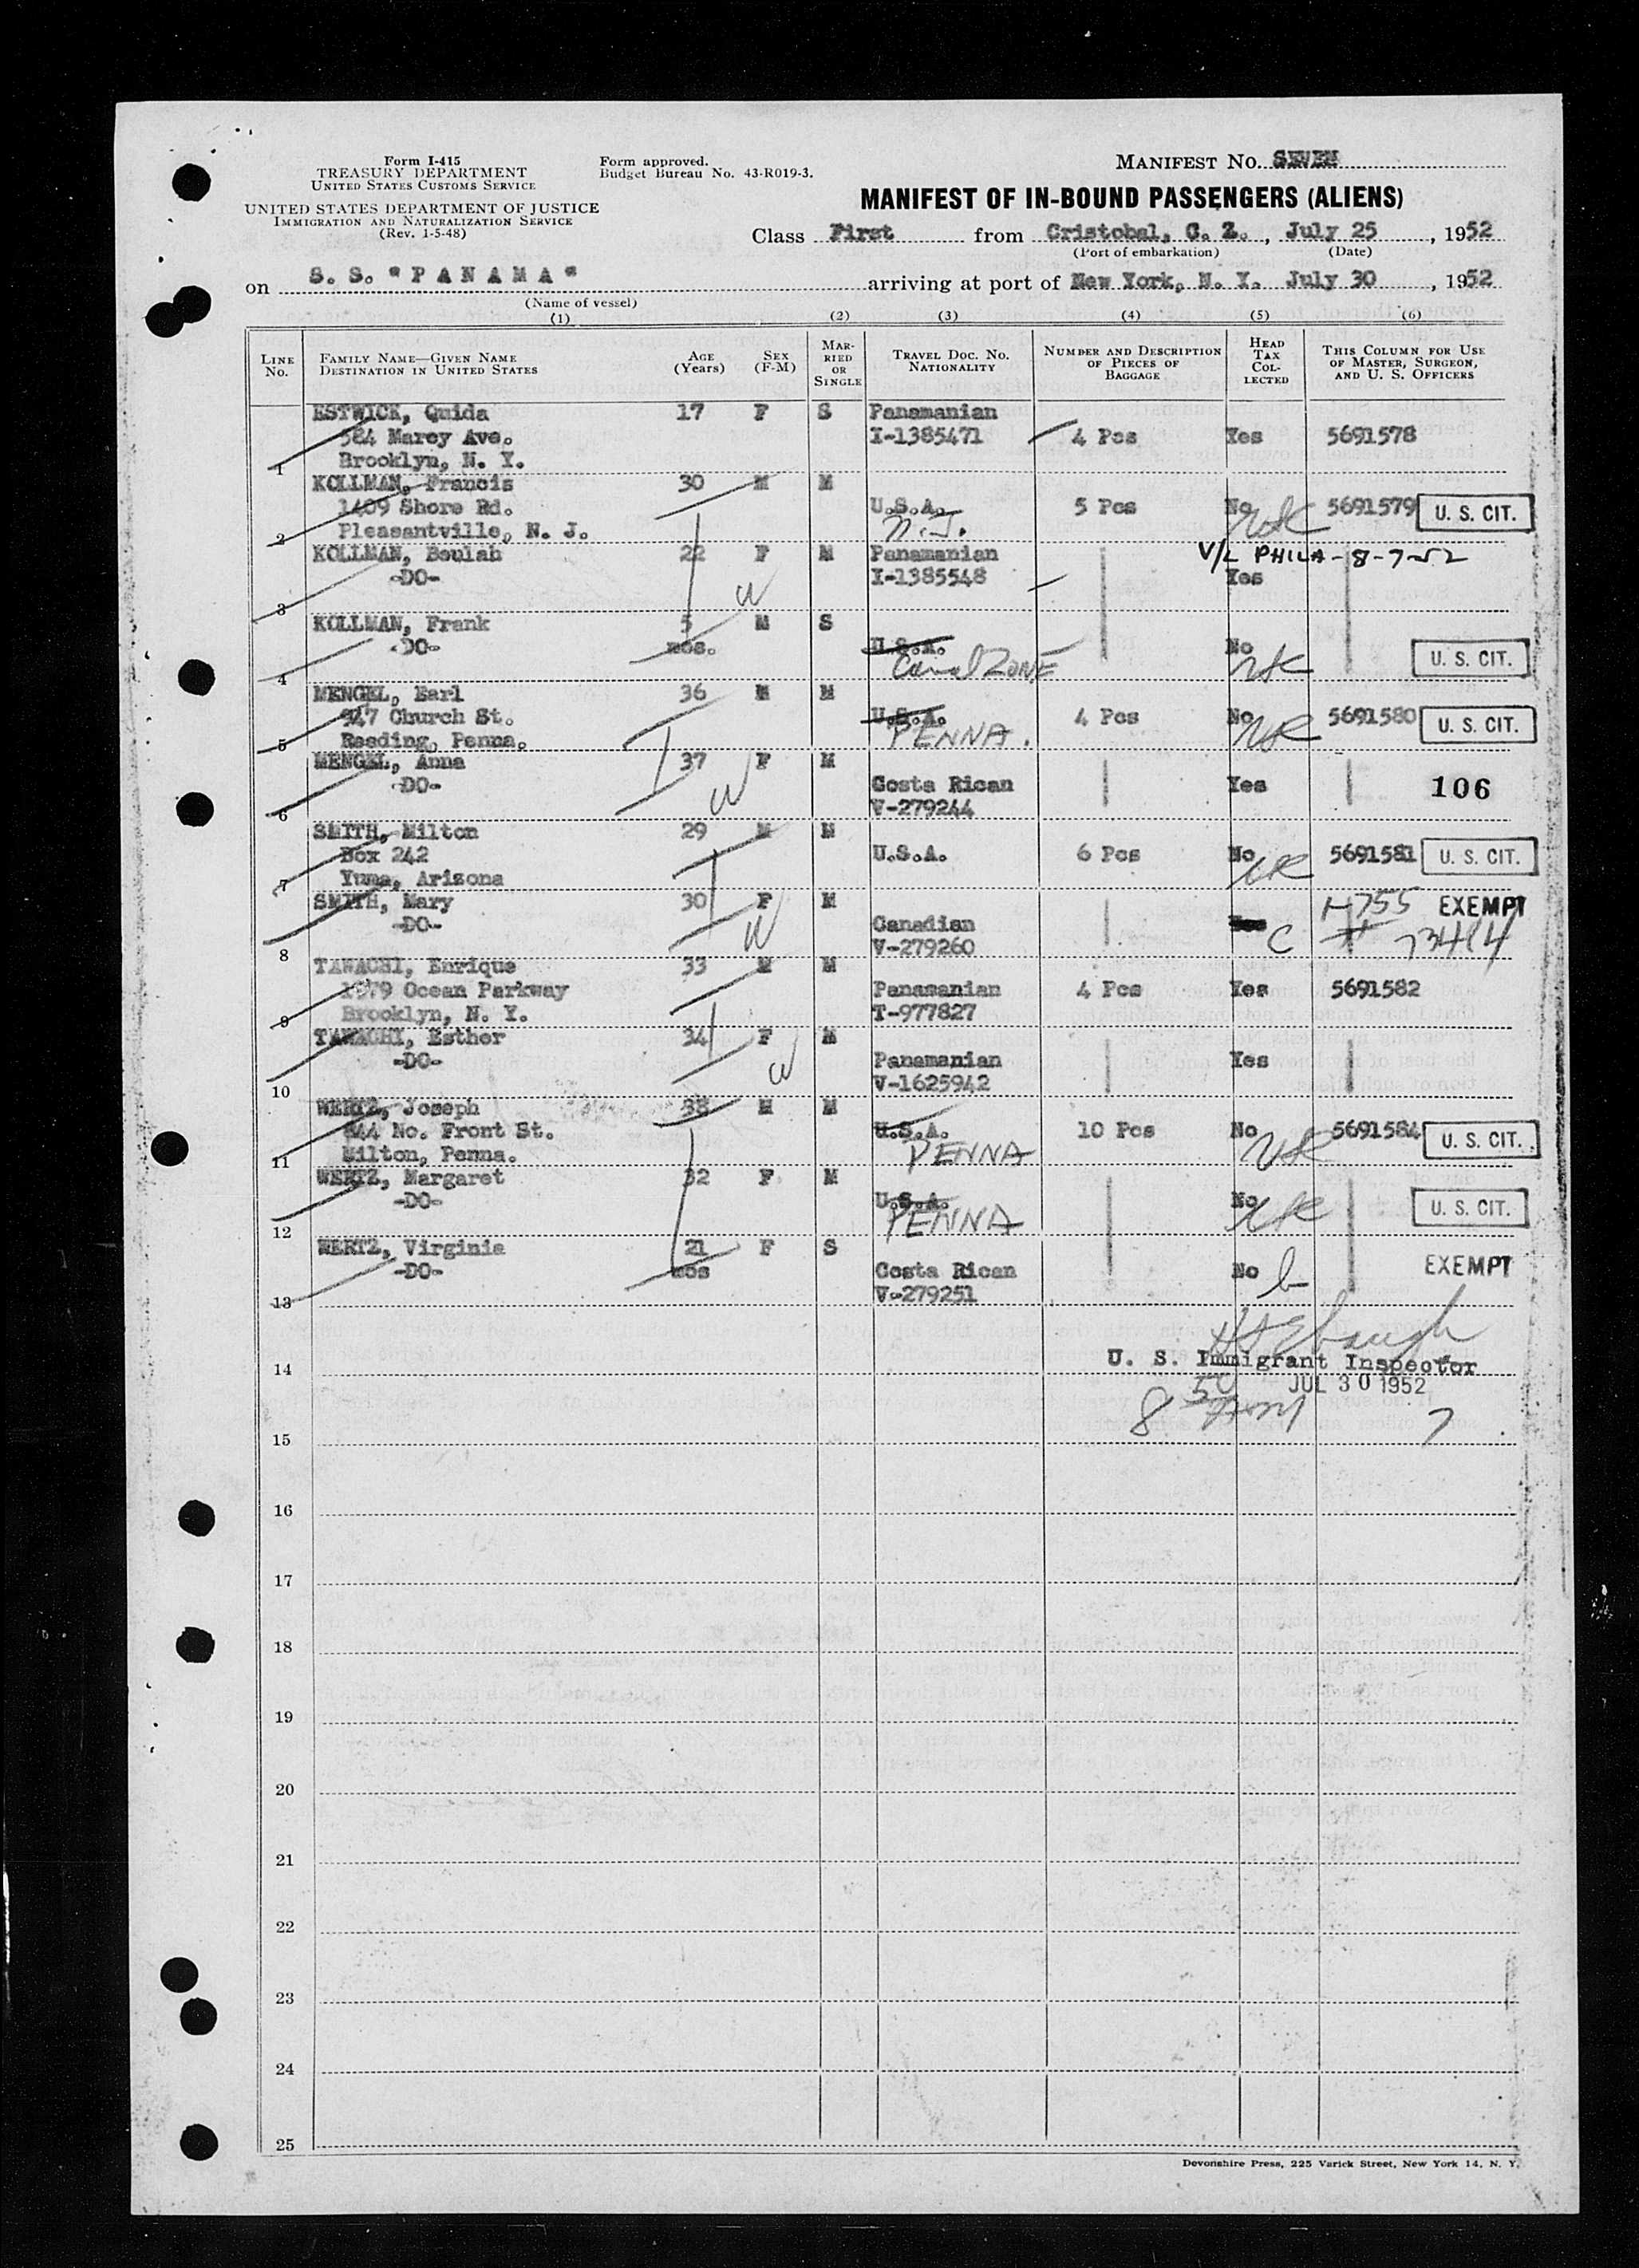 Form I-415
TREASURY DEPARTMENT
UNITED STATES CUSTOMS SERVICE
UNITED STATES DEPARTMENT OF JUSTICE
IMMIGRATION AND NATURALIZATION SERVICE
(Rev. 1-5-48)
Form approved.
Budget Bureau No. 43-R019-3.
MANIFEST No. SEVEN
MANIFEST OF IN-BOUND PASSENGERS (ALIENS)
Class First from Cristobal, C. Z., July 25, 1952
(Port of embarkation) (Date)
on S. S. "P A N A M A" arriving at port of New York, N. Y. July 30, 1952
(Name of vessel)
(1) (2) (3) (4) (5) (6)
LINE No. FAMILY NAME—GIVEN NAME DESTINATION IN UNITED STATES AGE (Years) SEX (F-M) MARRIED OR SINGLE TRAVEL DOC. NO. NATIONALITY NUMBER AND DESCRIPTION OF PIECES OF BAGGAGE HEAD TAX COLLECTED THIS COLUMN FOR USE OF MASTER, SURGEON, AND U. S. OFFICERS
ESTWICK, Quida 17 F S Panamanian
584 Marcy Ave. I-1385471 4 Pcs Yes 5691578
1 Brooklyn, N. Y.
KOLLMAN, Francis 30 M M
1409 Shore Rd. U.S.A. 5 Pcs No 5691579 U. S. CIT.
2 Pleasantville, N. J. N.J.
KOLLMAN, Beulah 22 F M Panamanian V/L PHILA-8-7-52
-DO- I-1385548 Yes
3 W
KOLLMAN, Frank 5 M S
-DO- mos. U.S.A. No U. S. CIT.
4 Canal ZONE
MENGEL, Earl 36 M M
947 Church St. U.S.A. 4 Pcs No 5691580 U. S. CIT.
5 Reading, Penna. PENNA.
MENGEL, Anna 37 F M
-DO- Costa Rican Yes 106
6 W V-279244
SMITH, Milton 29 M M
Box 242 U.S.A. 6 Pcs No 5691581 U. S. CIT.
7 Yuma, Arizona
SMITH, Mary 30 F M EXEMPT
-DO- Canadian C
8 W V-279260
TAWACHI, Enrique 33 M M
1579 Ocean Parkway Panamanian 4 Pcs Yes 5691582
9 Brooklyn, N. Y. T-977827
TAWACHI, Esther 34 F M
-DO- Panamanian Yes
10 W V-1625942
WERTZ, Joseph 38 M M
844 No. Front St. U.S.A. 10 Pcs No 5691584 U. S. CIT.
11 Milton, Penna. PENNA
WERTZ, Margaret 32 F M
-DO- U.S.A. No U. S. CIT.
12 PENNA
WERTZ, Virginia 21 F S
-DO- mos Costa Rican No b EXEMPT
13 V-279251
U. S. Immigrant Inspector
14 JUL 30 1952
8 50 7
15
16
17
18
19
20
21
22
23
24
25
Devonshire Press, 225 Varick Street, New York 14, N. Y.